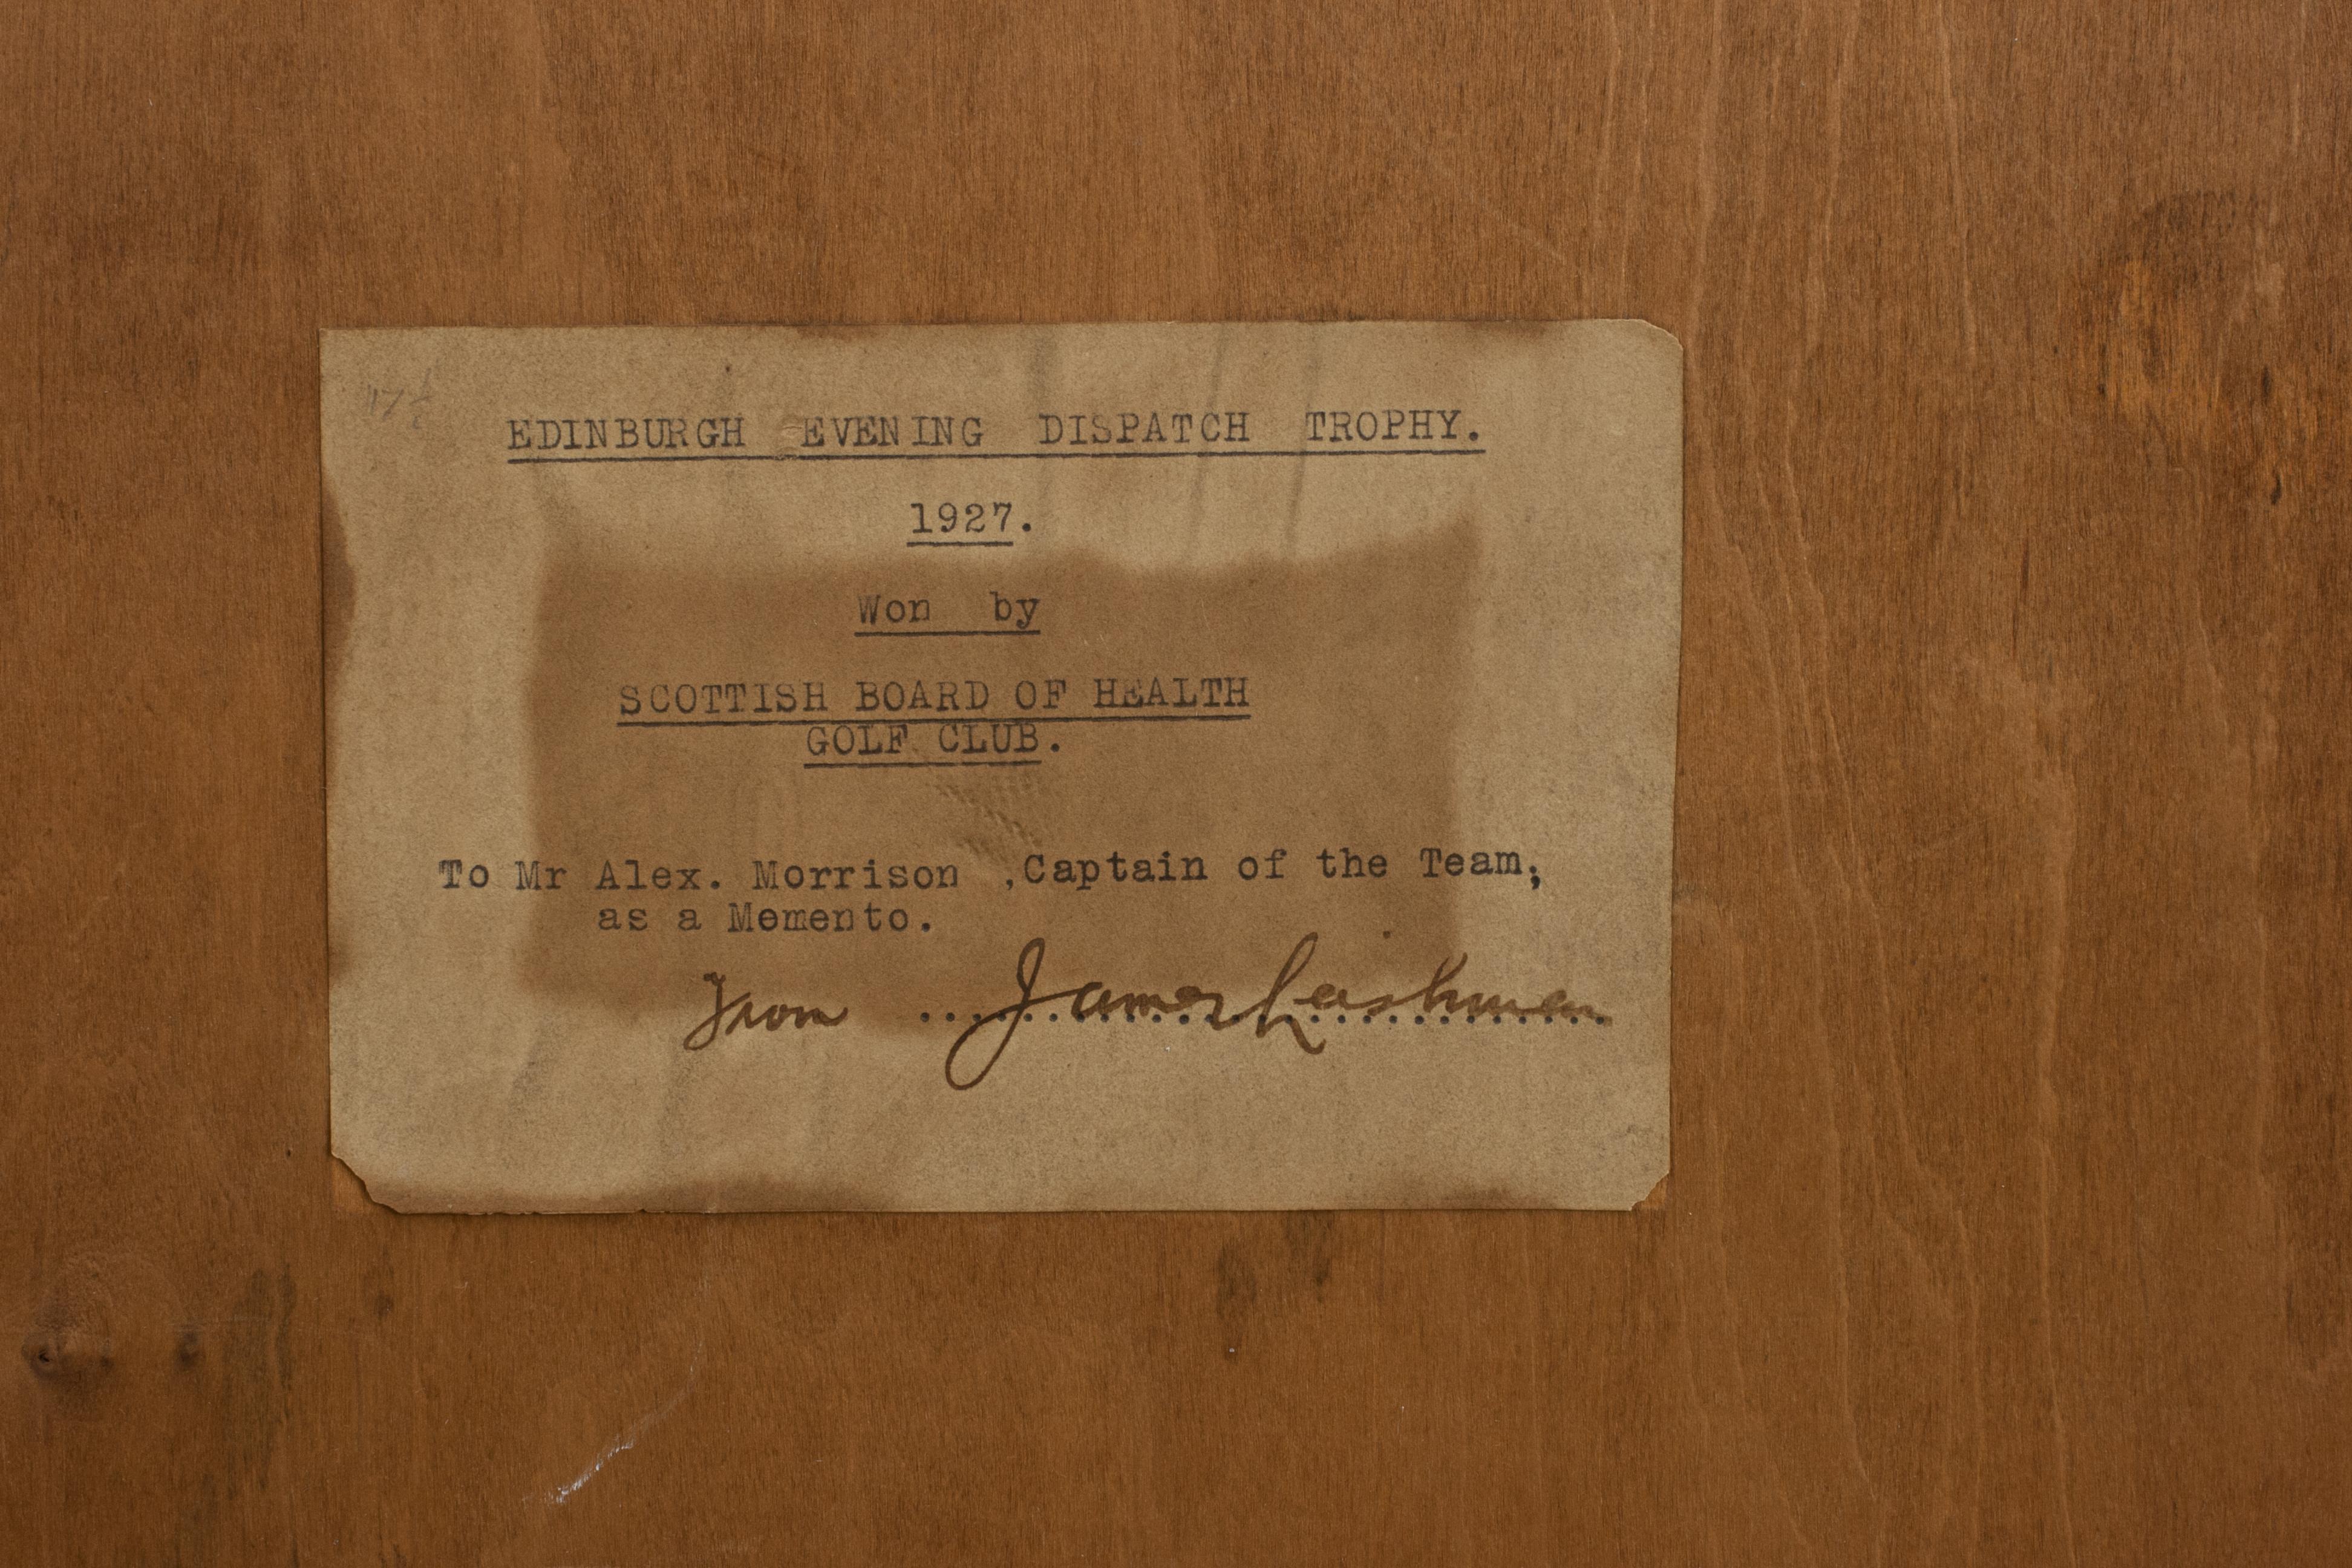 EDINBURGH EVENING DISPATCH TROPHY.
1927.
Won by
SCOTTISH BOARD OF HEALTH
GOLF CLUB.
To Mr Alex. Morrison ,Captain of the Team,
as a Memento.
From ... James Leishman